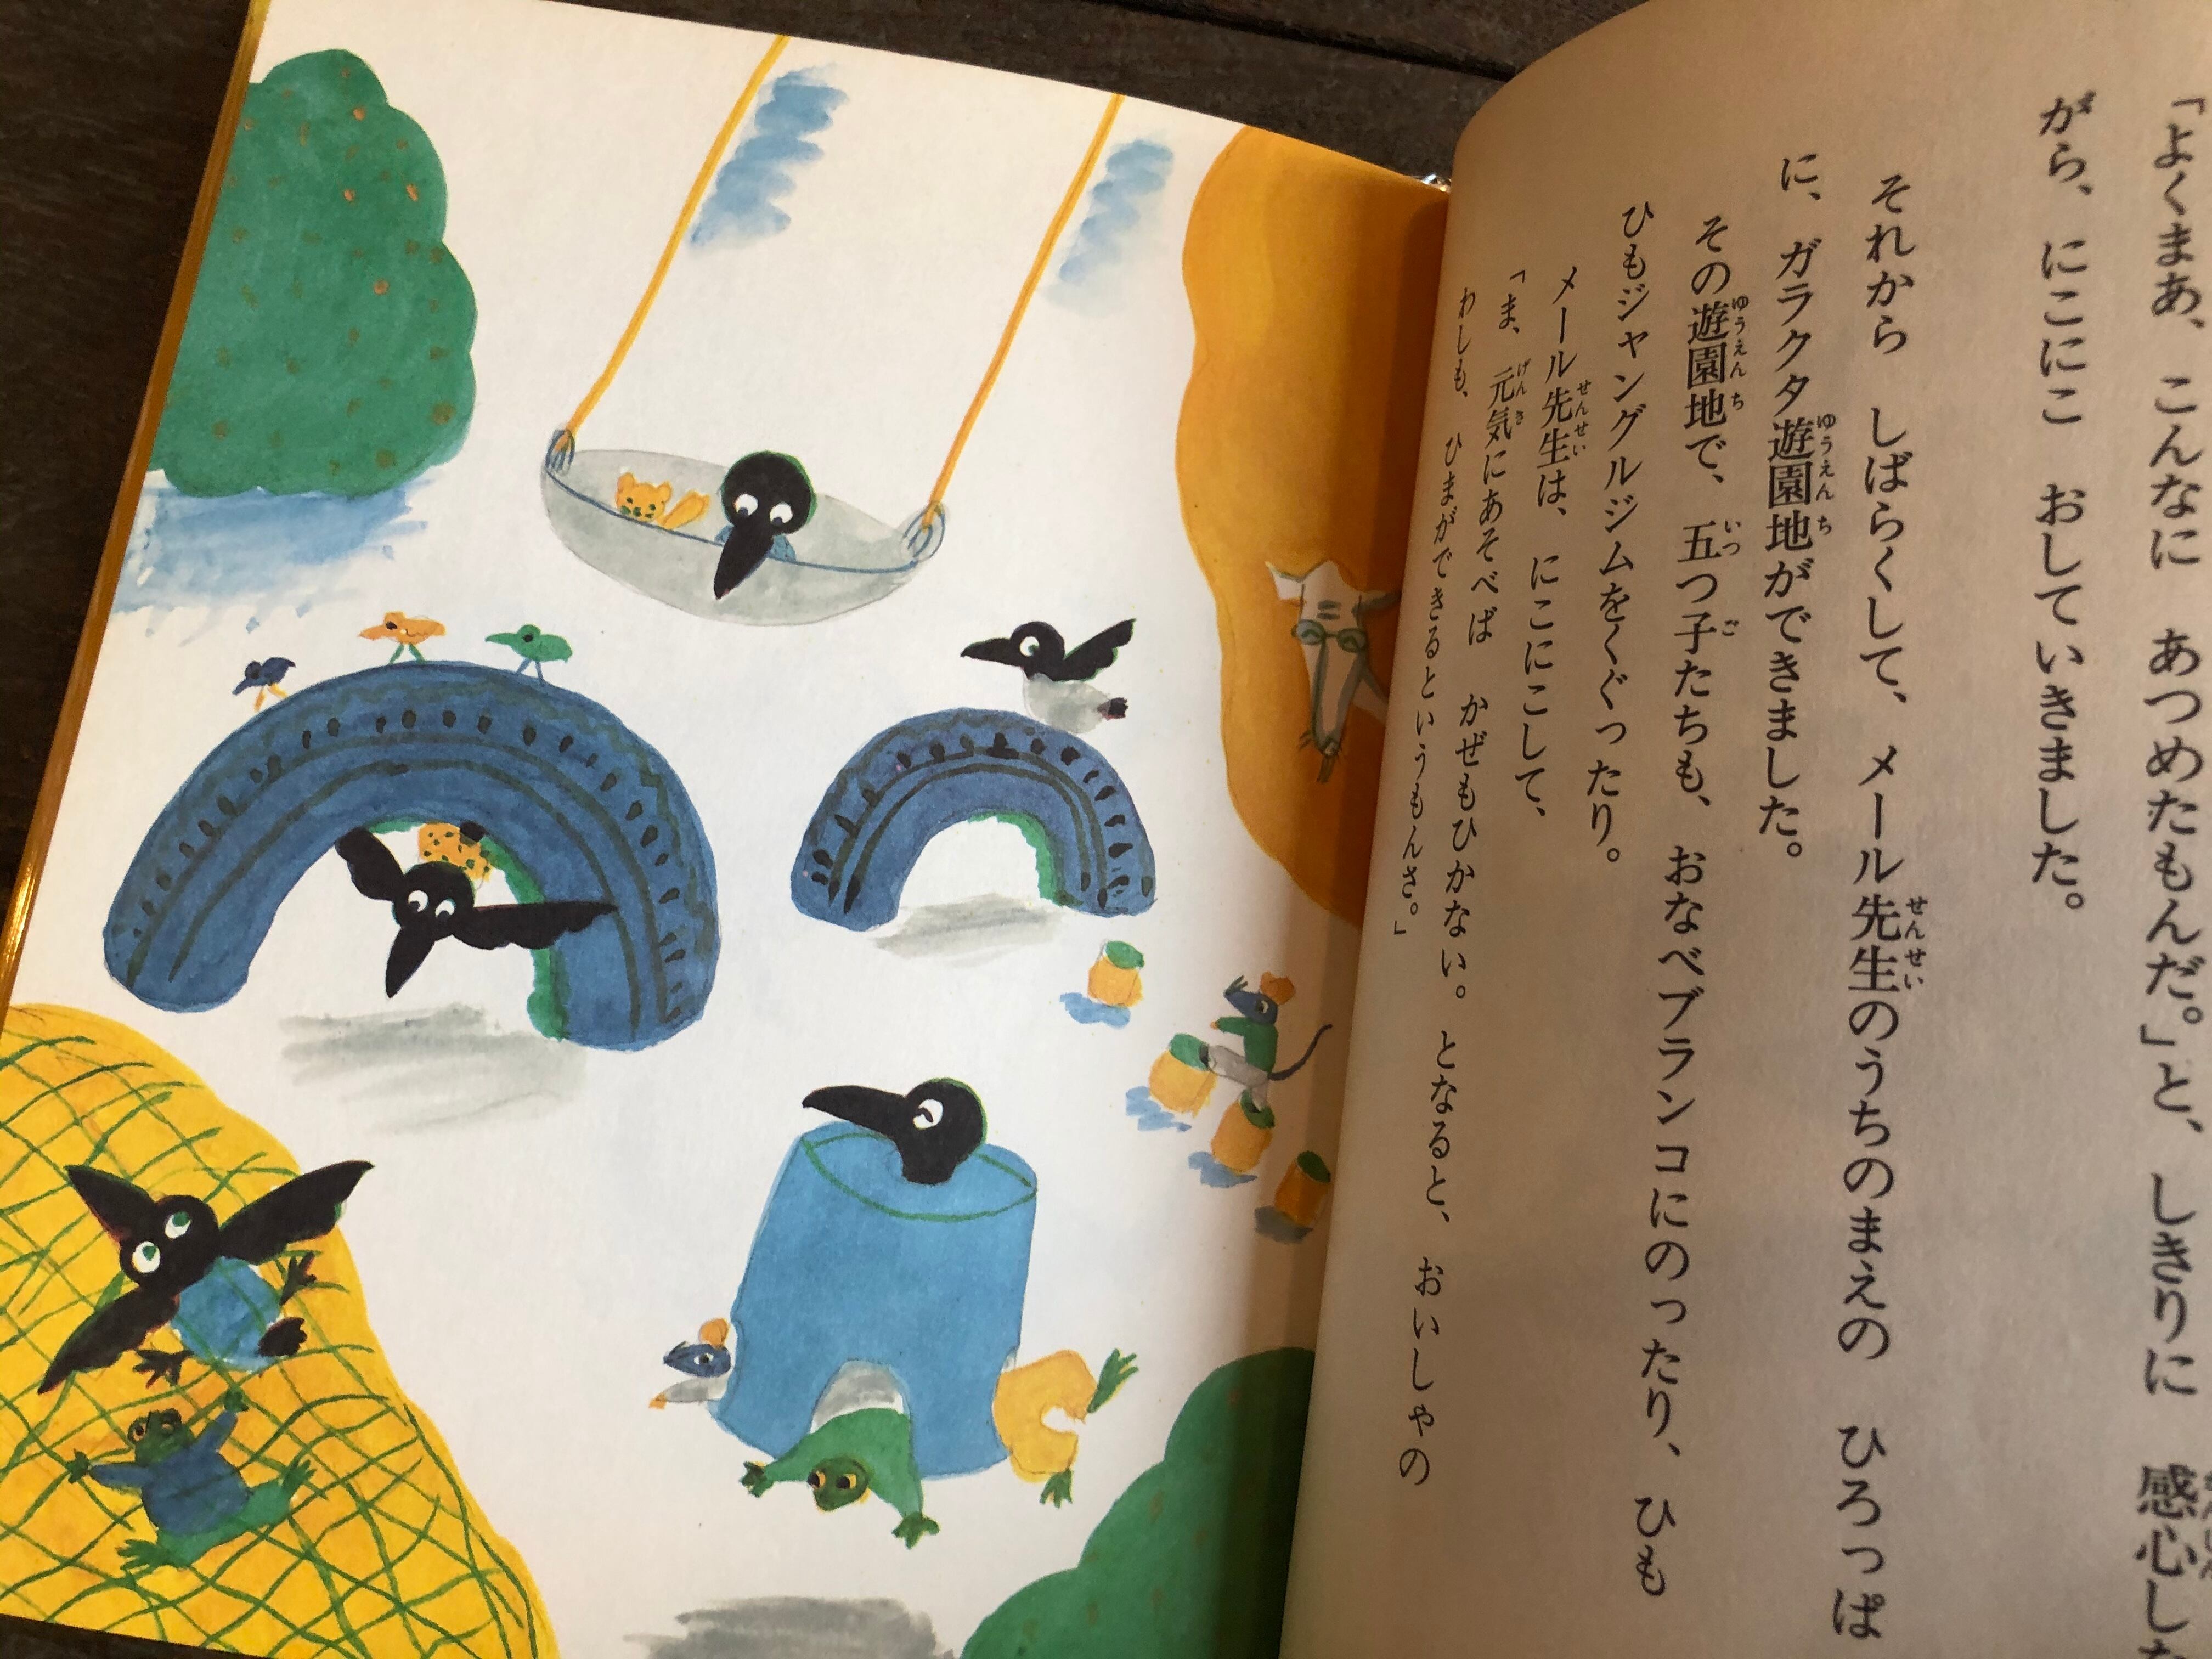 「よくまあ、こんなに あつめたもんだ。」と、しきりに 感心しな
がら、にこにこ おしていきました。
それから しばらくして、メール先生のうちのまえの ひろっぱ
に、ガラクタ遊園地ができました。
その遊園地で、五つ子たちも、おなべブランコにのったり、ひも
ひもジャングルジムをくぐったり。
メール先生は、にこにこして、
「ま、元気にあそべば かぜもひかない。となると、おいしゃの
わしも、ひまができるというもんさ。」